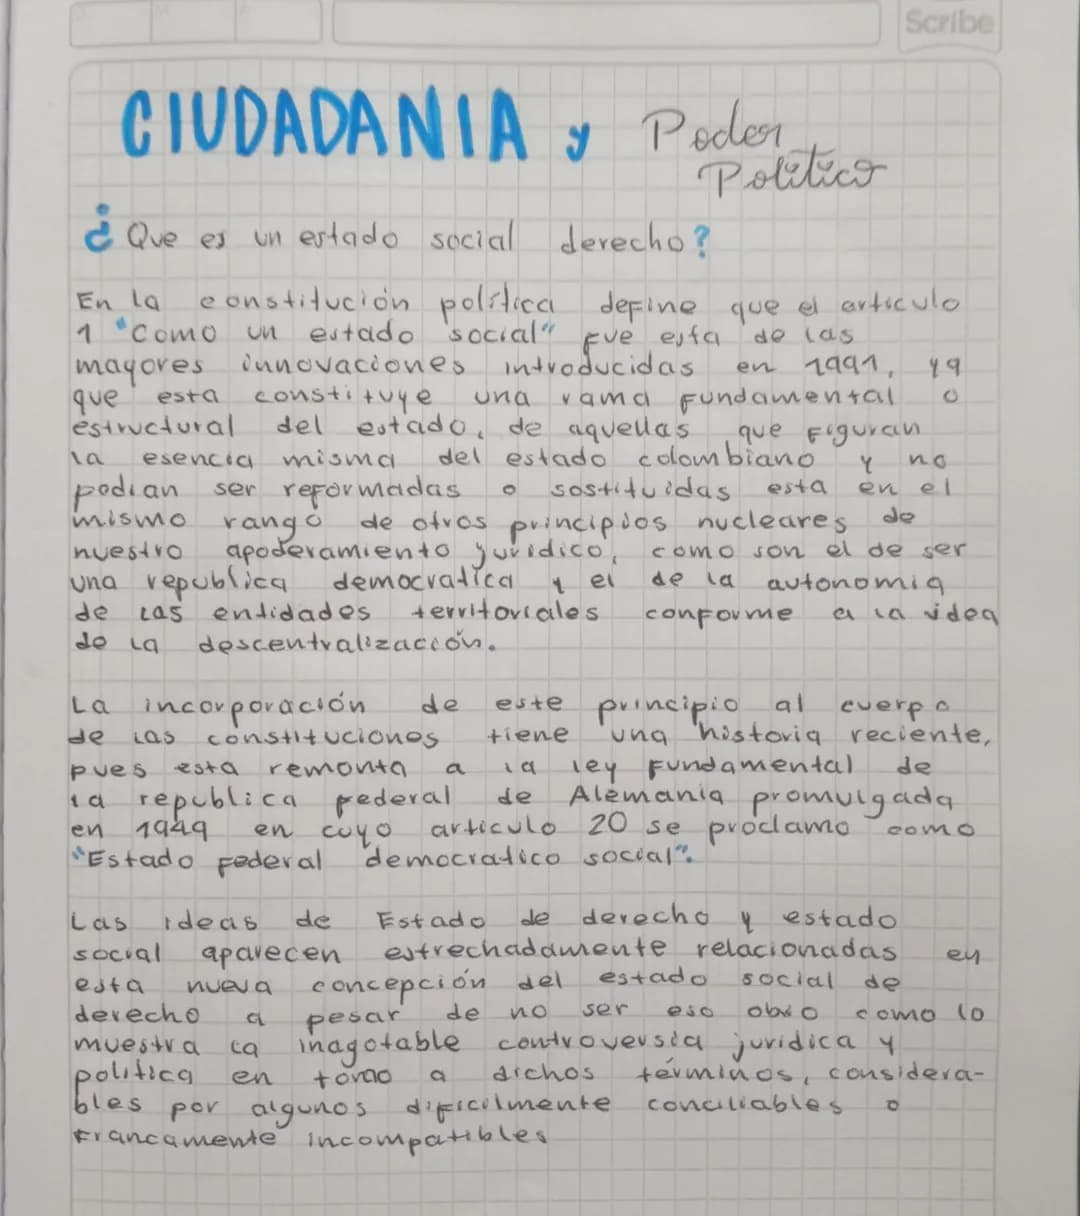 Scribe
CIUDADANIA y Poder
Politico
¿Que es un estado social derecho?
En la constitución política define que el articulo
1 "Como un estado social" fue esta de las
mayores innovaciones introducidas en 1991, ya
que esta constituye una rama fundamental o
estructural del estado, de aquellas que figuran
la esencia misma del estado colombiano y no
podian ser reformadas o sostituidas esta en el
mismo rango de otros principios nucleares de
nuestro apoderamiento juridico, como son el de ser
una republica democratica y el de la autonomia
de las entidades territoriales conforme a la idea
de la descentralización.
La incorporación de este principio al cuerpo
de las constituciones tiene una historia reciente,
pues esta remonta a la ley fundamental de
la republica federal de Alemania promulgada
en 1949 en cuyo articulo 20 se proclamo como
"Estado federal democratico social".
Las ideas de Estado de derecho y estado
social aparecen estrechadamente relacionadas en
esta nueva concepción del estado social de
derecho a pesar de no ser eso obvio como lo
muestra la inagotable controversia juridica y
politica en torno a dichos términos, considera-
bles por algunos dificilmente conciliables o
francamente incompatibles